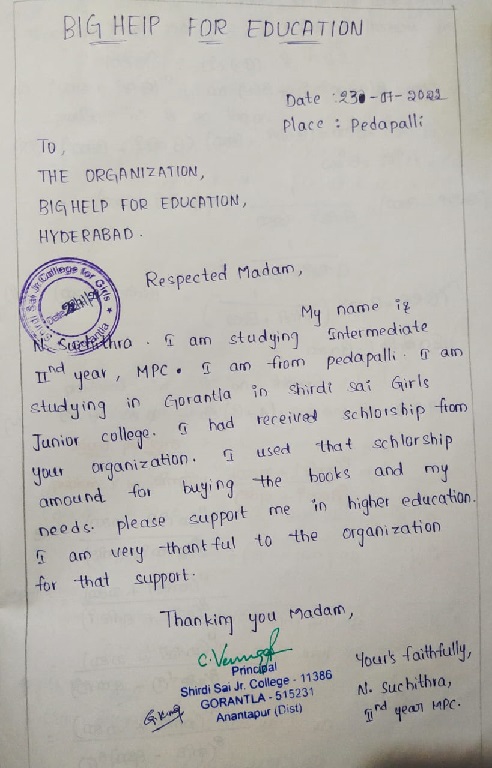 BIG HEIP FOR EDUCATION
Date : 23-07-2022
Place : Pedapalli
To,
THE ORGANIZATION,
BIG HELP FOR EDUCATION,
HYDERABAD.
Respected Madam,
My name is
N. Suchithra. I am studying Intermediate
IInd year, MPC. I am from pedapalli. I am
studying in Gorantla in shirdi sai Girls
Junior college. I had received schlorship from
your organization. I used that schlorship
amound for buying the books and my
needs. please support me in higher education.
I am very thankful to the organization
for that support.
Thanking you Madam,
Shirdi Sai Jr. College for Girls
Gorantla
Date
Principal
Shirdi Sai Jr. College - 11386
GORANTLA - 515231
Anantapur (Dist)
Your's faithfully,
N. Suchithra,
IInd year MPC.